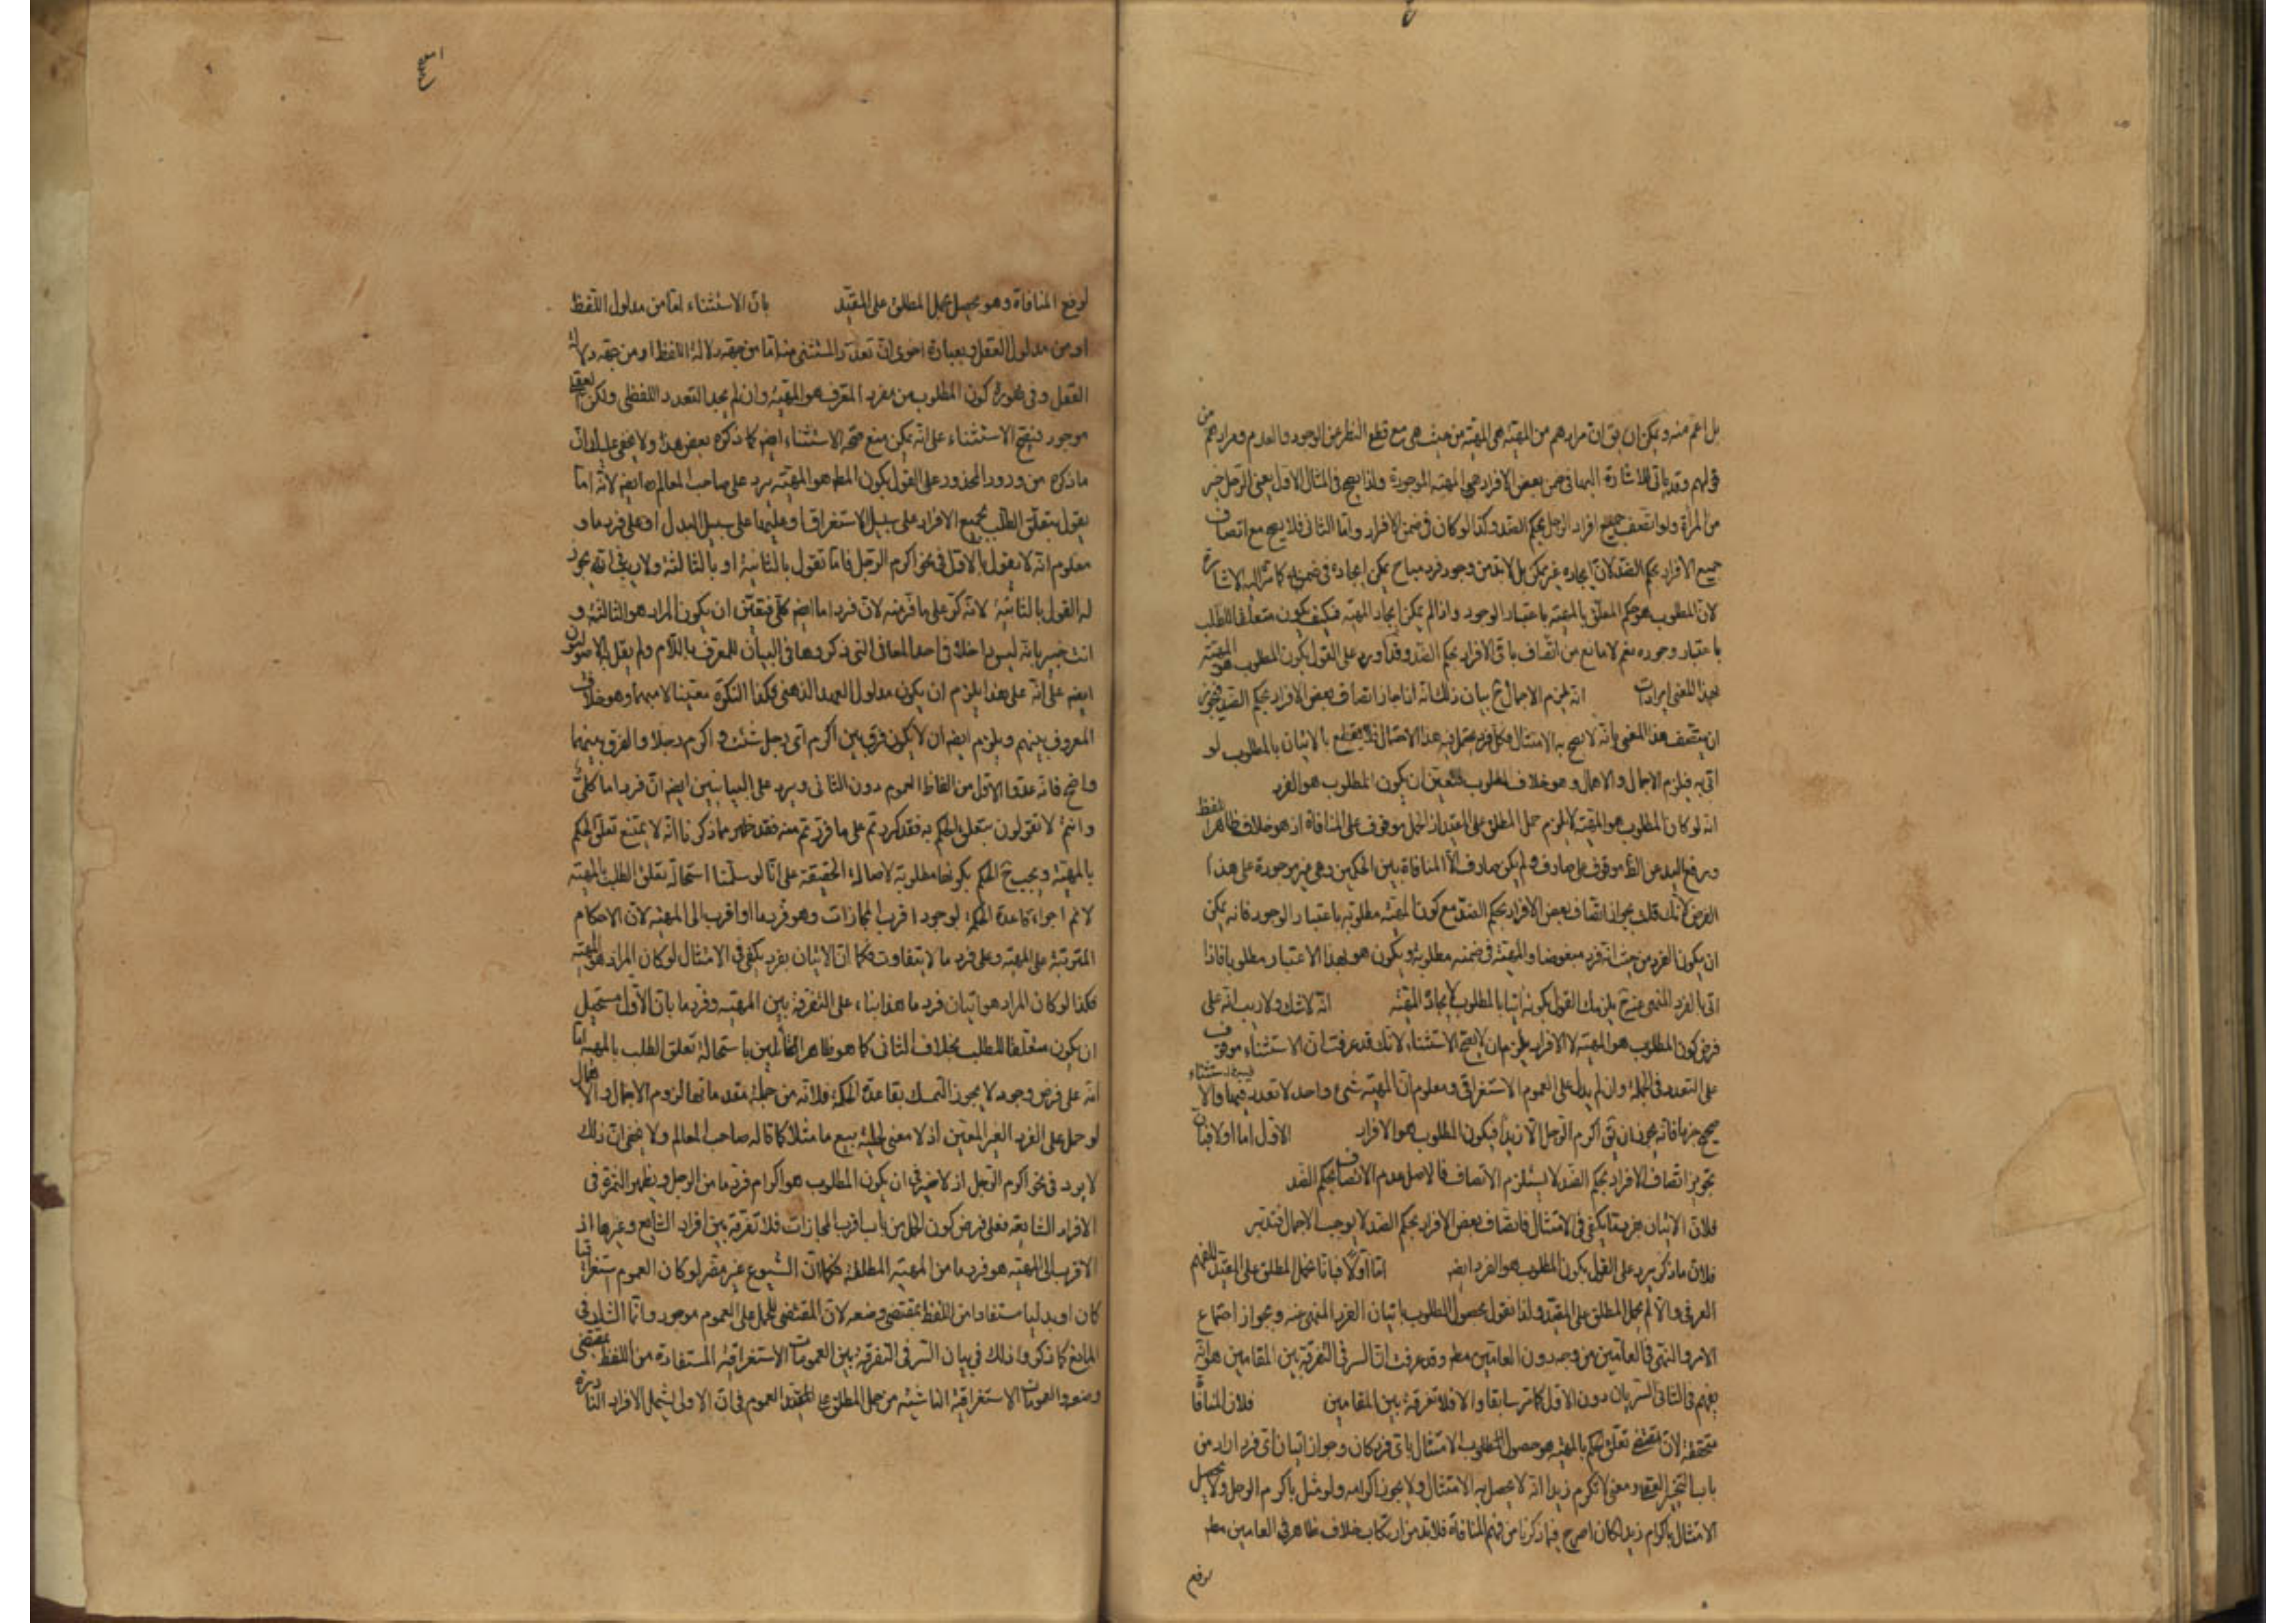 بل اعم منه ويمكن ان يق ان مرادهم من المهية هى المهية من حيث هى مع قطع النظر عن الوجود والعدم ومرادهم من
قولهم وقد ياتى للاشارة اليها فى ضمن بعض الافراد هى المهية الموجودة ولذا يصح فى المثال الاول يعنى الرجل خير
من المرأة ولو اتصف جميع افراد الرجل بحكم الضد وكذا لو كان فى ضمن الافراد واما الثانى فلا يصح مع اتصاف
جميع الافراد بحكم الضد لان ايجاده غير ممكن بل لا بد من وجود فرد مباح يمكن ايجاده فى ضمنه كما مر اليه الاشارة
لان المطلوب هو حكم المعلق بالمهية باعتبار الوجود واذا لم يمكن ايجاد المهية فكيف يكون متعلقا للطلب
باعتبار وجوده نعم لا مانع من اتصاف باقى الافراد بحكم الضد وقد اورد على القول بكون المطلوب هو المهية
بهذا المعنى ايرادات انه يلزم الاجمال ح بيان ذلك انه اذا جاز اتصاف بعض الافراد بحكم الضد فيجوز
ان يتصف هذا المعنى بانه لا يصح به الامتثال فكل فرد يحتمل فيه هذا الاحتمال فلا يقطع بالاتيان بالمطلوب لو
اتى به فيلزم الاجمال والاهمال وهو خلاف المطلوب فتعين ان يكون المطلوب هو الفرد
انه لو كان المطلوب هو المهية لا يلزم حمل المطلق على المقيد اذ الحمل موقوف على المنافاة اذ هو خلاف ظاهر اللفظ
ورفع اليد عن الظ موقوف على صارف ولم يكن صارف الا المنافاة بين الحكمين وهى غير موجودة على هذا
الفرض لانك قلت بجواز اتصاف بعض الافراد بحكم الضد مع كون المهية مطلوبة باعتبار الوجود فانه يمكن
ان يكون الفرد من حيث انه فرد مبغوضا والمهية فى ضمنه مطلوبة ويكون هو بهذا الاعتبار مطلوبا فاذا
اتى بالفرد المنهى عنه ح يلزمك القول بكونه اتيا بالمطلوب لايجاد المهية انه لا شك ولا ريب انه على
فرض كون المطلوب هو المهية لا الافراد يلزم ان لا يصح الاستثناء لانك قد عرفت ان الاستثناء موقوف
على التعدد فى الجملة وان لم يدل على العموم الاستغراقى ومعلوم ان المهية شىء واحد لا تعدد فيها والاستثناء
صحيح جزما فانه يجوز ان يق اكرم الرجل الا زيدا فيكون المطلوب هو الافراد الاول اما اولا فبان
تجويز اتصاف الافراد بحكم الضد لا يستلزم الاتصاف فالاصل عدم الاتصاف بحكم الضد
فلان الاتيان يكفى فى الامتثال فاتصاف بعض الافراد بحكم الضد لا يوجب الاجمال فتدبر
فلان ما ذكر يرد على القول بكون المطلوب هو الفرد ايض اما اولا فبانا نحمل المطلق على المقيد للفهم
العرفى والا لم نحمل المطلق على المقيد ولذا نقول بحصول المطلوب باتيان الفرد المنهى عنه وبجواز اجتماع
الامر والنهى فى العامين من وجه دون العامين مطه وقد عرفت ان السر فى التفرقة بين المقامين هو انه
يفهم فى الثانى السريان دون الاول كما مر سابقا والا فلا تفرقة بين المقامين فلان المنافاة
متحققة لان مقتضى تعلق الحكم بالمهية هو حصول المطلوب والامتثال باى فرد كان وجواز اتيان اى فرد اراد من
باب التخيير العقلى ومعنى لا تكرم زيدا انه لا يحصل به الامتثال ولا يجوز اكرامه ولو مثل باكرم الرجل ولا يحصل
الامتثال باكرام زيد لكان اصرح فيما ذكرنا من فهم المنافاة فلا بد من ارتكاب خلاف ظاهر فى العامين مطه
لرفع
لرفع المنافاة وهو يحصل بحمل المطلق على المقيد بان الاستثناء اما من مدلول اللفظ
او من مدلول العقل وبعبارة اخرى ان تعدد المستثنى منه اما من جهة دلالة اللفظ او من جهة دلالة
العقل وفى صورة كون المطلوب من مفرد المعرف هو المهية وان لم يجد التعدد اللفظى ولكن العقلى
موجود فيصح الاستثناء على انه يمكن منع صحة الاستثناء ايض كما ذكره بعض هذا ولا يخفى عليك ان
ما ذكره من ورود المحذور على القول بكون المطه هو المهية يرد على صاحب المعالم ره ايض لانه اما
يقول بتعلق الطلب بجميع الافراد على سبيل الاستغراق او عليها على سبيل البدل او على فرد ما و
معلوم انه لا يقول بالاول فى نحو اكرم الرجل فاما تقول بالثانية او بالثالثة ولا ريب فى انه لا يجوز
له القول بالثانية لانه كر على ما فر منه لان فردا ما ايض كلى فتعين ان يكون المراد هو الثالثة و
انت خبير بانه ليس داخلا فى احد المعانى التى ذكروها فى البيان للمعرف باللام ولم يقل به الاصوليون
ايض على انه على هذا يلزم ان يكون مدلول العهد الذهنى فكذا النكرة معينا لا مبهما وهو خلاف
المعروف بينهم ويلزم ايض ان لا يكون فرق بين اكرم اى رجل شئت واكرم رجلا والفرق بينهما
واضح فانه عدوا الاول من الفاظ العموم دون الثانى ويرد على البيانيين ايض ان فردا ما كلى
وانتم لا تقولون بتعلق الحكم به فقد كررتم على ما فررتم منه فقد ظهر مما ذكرنا انه لا يمتنع تعلق الحكم
بالمهية ويجب ح الحكم بكونها مطلوبة لاصالة الحقيقة على انا لو سلمنا استحالة تعلق الطلب بالمهية
لا نم اجراء قاعدة الحكمة لوجود اقرب المجازات وهو فرد ما او اقرب الى المهية لان الاحكام
المترتبة على المهية وعلى فرد ما لا يتفاوت فكما ان الاتيان بفرد يكفى فى الامتثال لو كان المراد هو المهية
فكذا لو كان المراد هو اتيان فرد ما هذا بناء على التفرقة بين المهية وفرد ما بان الاول مستحيل
ان يكون متعلقا للطلب بخلاف الثانى كما هو ظاهر القائلين باستحالة تعلق الطلب بالمهية اما
انه على فرض وجوده لا يجوز التمسك بقاعدة الحكمة فلانه من جملة مقدماتها لزوم الاجمال والاهمال
لو حمل على الفرد الغير المعين اذ لا معنى لحلية بيع ما مثلا كما قاله صاحب المعالم ولا يخفى ان ذلك
لا يرد فى نحو اكرم الرجل اذ لا ضير فى ان يكون المطلوب هو اكرام فرد ما من الرجل ويظهر الثمرة فى
الافراد الشايعة فعلى فرض كون الحمل من باب اقرب المجازات فلا تفرقة بين افراد الشايع وغيرها اذ
الاقرب الى المهية هو فرد ما من المهية المطلقة فكما ان الشيوع غير مضر لو كان العموم استغراقيا
كان او بدليا مستفادا من اللفظ بمقتضى وضعه لان المقتضى للحمل على العموم موجود وانما الشك فى
المانع كما ذكروا ذلك فى بيان السر فى التفرقة بين العمومات الاستغراقية المستفادة من اللفظ بمقتضى
وضعه والعمومات الاستغراقية الناشئة من حمل المطلق على العموم فى ان الاولى يشمل الافراد النادرة